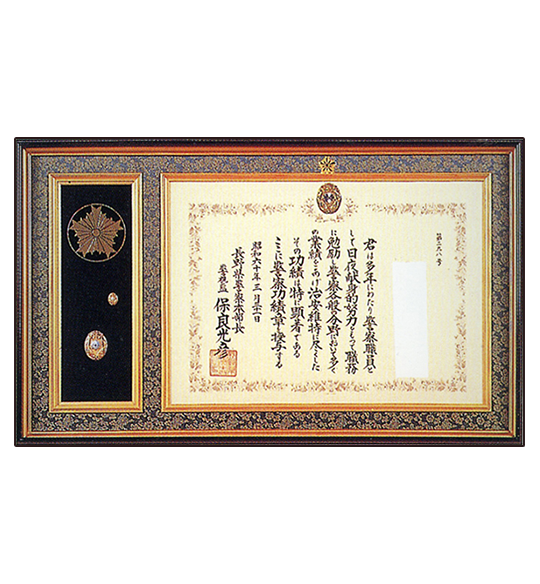 第三六八号
君は多年にわたり警察職員と
して日夜献身的努力をもって職務
に勉励し警察各般の分野において多く
の業績をあげ治安維持に尽くした
その功績は特に顕著である
ここに警察功績章を授与する
昭和六十年三月二十一日
長野県警察本部長
警視長 保良光彦